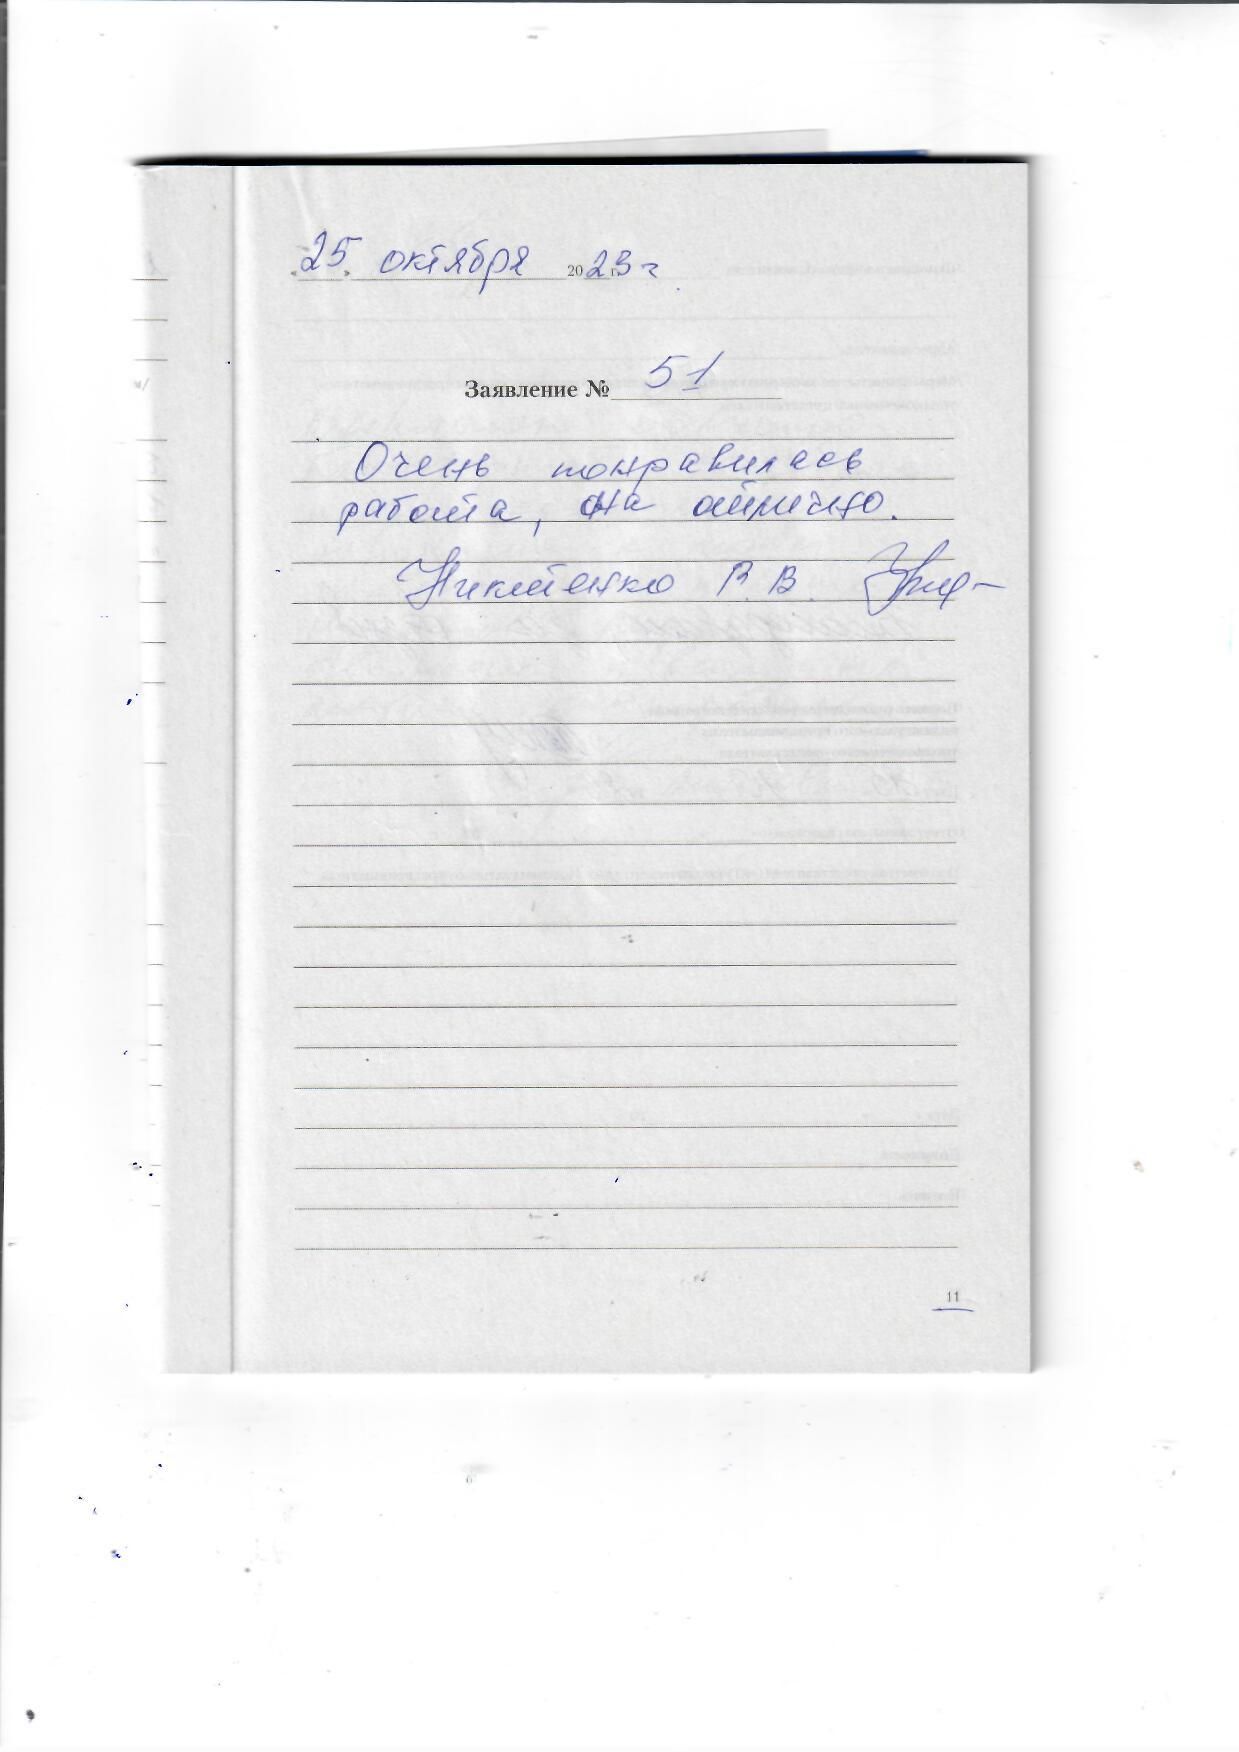 « 25 » октября 2023 г
Заявление № 51
Очень понравилась
работа, на отлично.
Никитенко В. В.
11